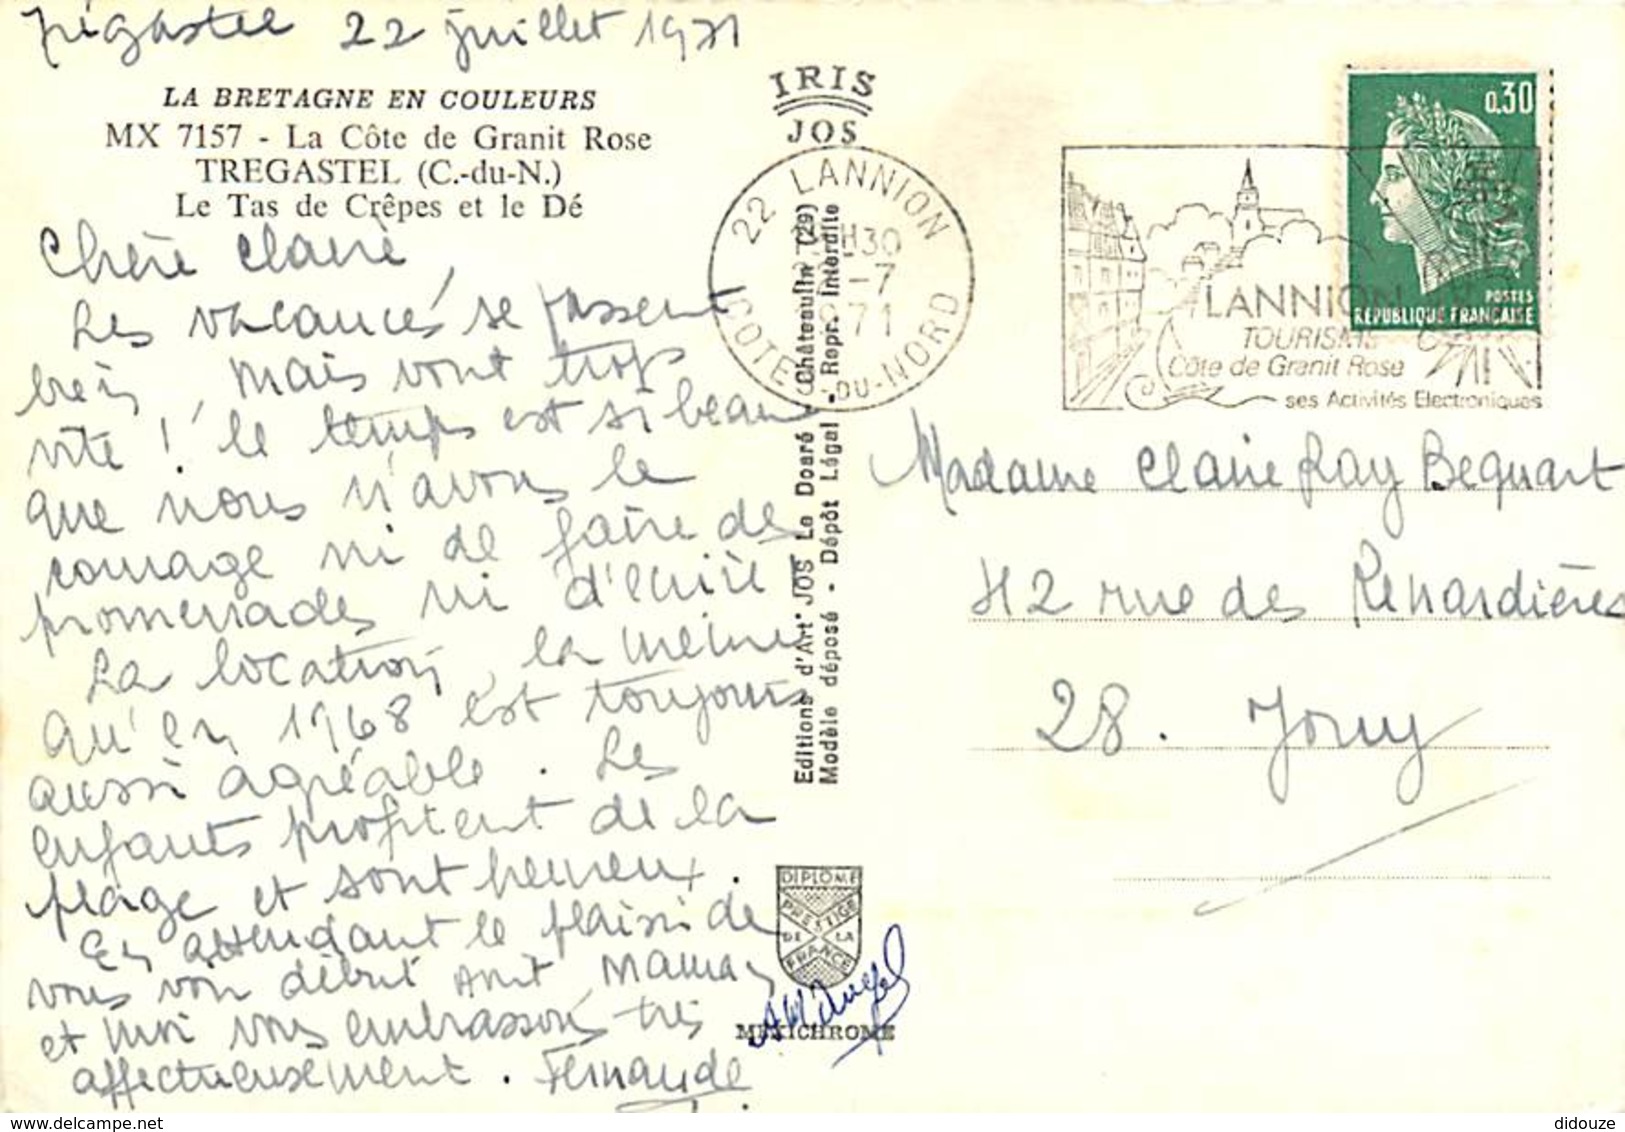 Trégastel 22 juillet 1971
LA BRETAGNE EN COULEURS
MX 7157 - La Côte de Granit Rose
TREGASTEL (C.-du-N.)
Le Tas de Crêpes et le Dé
Chère Claire,
Les vacances se passent
bien, mais vont trop
vite ! le temps est si beau
que nous n'avons le
courage ni de faire des
promenades ni d'écrire !
La location, la même
qu'en 1968 est toujours
aussi agréable. Les
enfants profitent de la
plage et sont heureux.
En attendant le plaisir de
vous voir début août Maman
et moi vous embrassons très
affectueusement. Fernande
IRIS
JOS
22 LANNION
H30
-7
71
COTES-DU-NORD
Editions d'Art JOS Le Doaré - Châteaulin (29)
Modèle déposé - Dépôt Légal - Repr. Interdite
DIPLOME
PRESTIGE
DE LA
FRANCE
MEXICHROME
0,30
POSTES
REPUBLIQUE FRANÇAISE
LANNION
TOURISME
Côte de Granit Rose
ses Activités Electroniques
Madame Claire Ray Bequart
42 rue des Renardières
28. Jouy
didouze